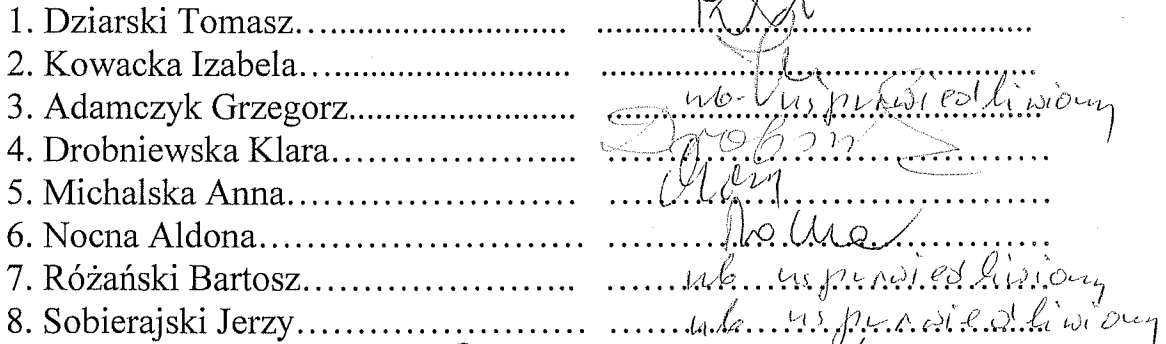 1. Dziarski Tomasz
2. Kowacka Izabela
3. Adamczyk Grzegorz nb. usprawiedliwiony
4. Drobniewska Klara
5. Michalska Anna
6. Nocna Aldona
7. Różański Bartosz nb usprawiedliwiony
8. Sobierajski Jerzy nb usprawiedliwiony